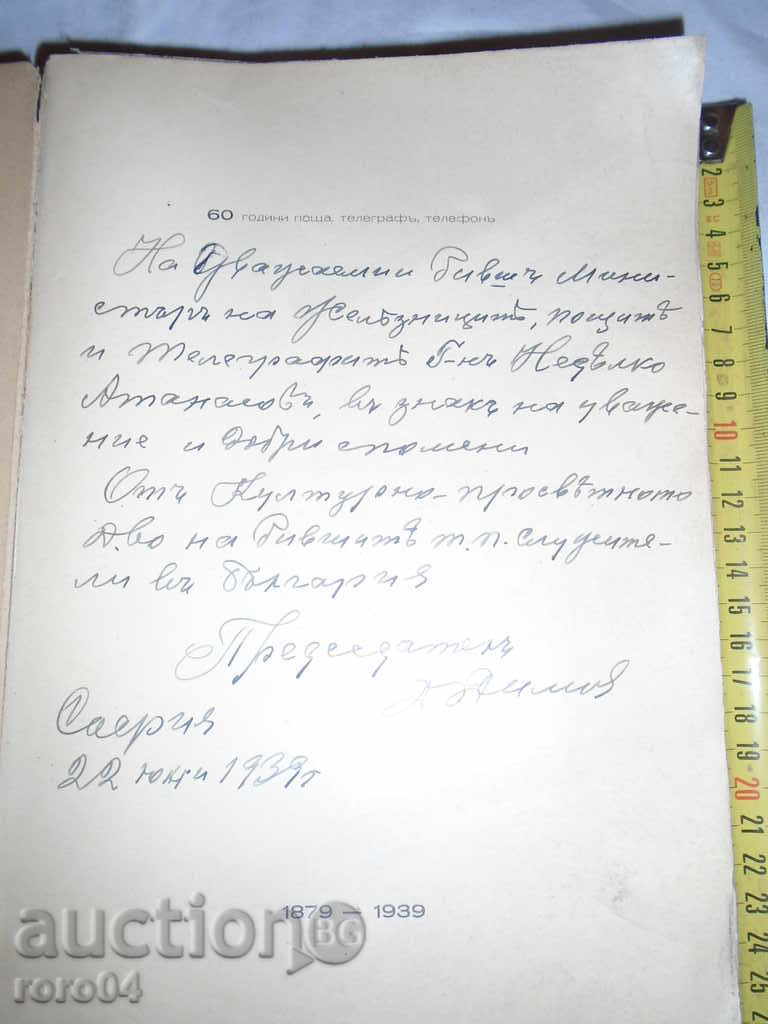 60 години поща, телеграфъ, телефонъ
На Уважаемии бившъ Мини-
стъръ на Желѣзницитѣ, пощитѣ
и Телеграфитѣ Г-нъ Недѣлко
Атанасовъ, въ знакъ на уваже-
ние и добри спомени
Отъ Културно-просвѣтното
Д.во на бившитѣ т.п. служите-
ли въ България
Председатель
София
22 юни 1939 г
1879 — 1939
auctionBG
roro04
2
3
4
5
6
7
8
9
10
11
12
13
14
15
16
17
18
19
20
21
22
23
24
25